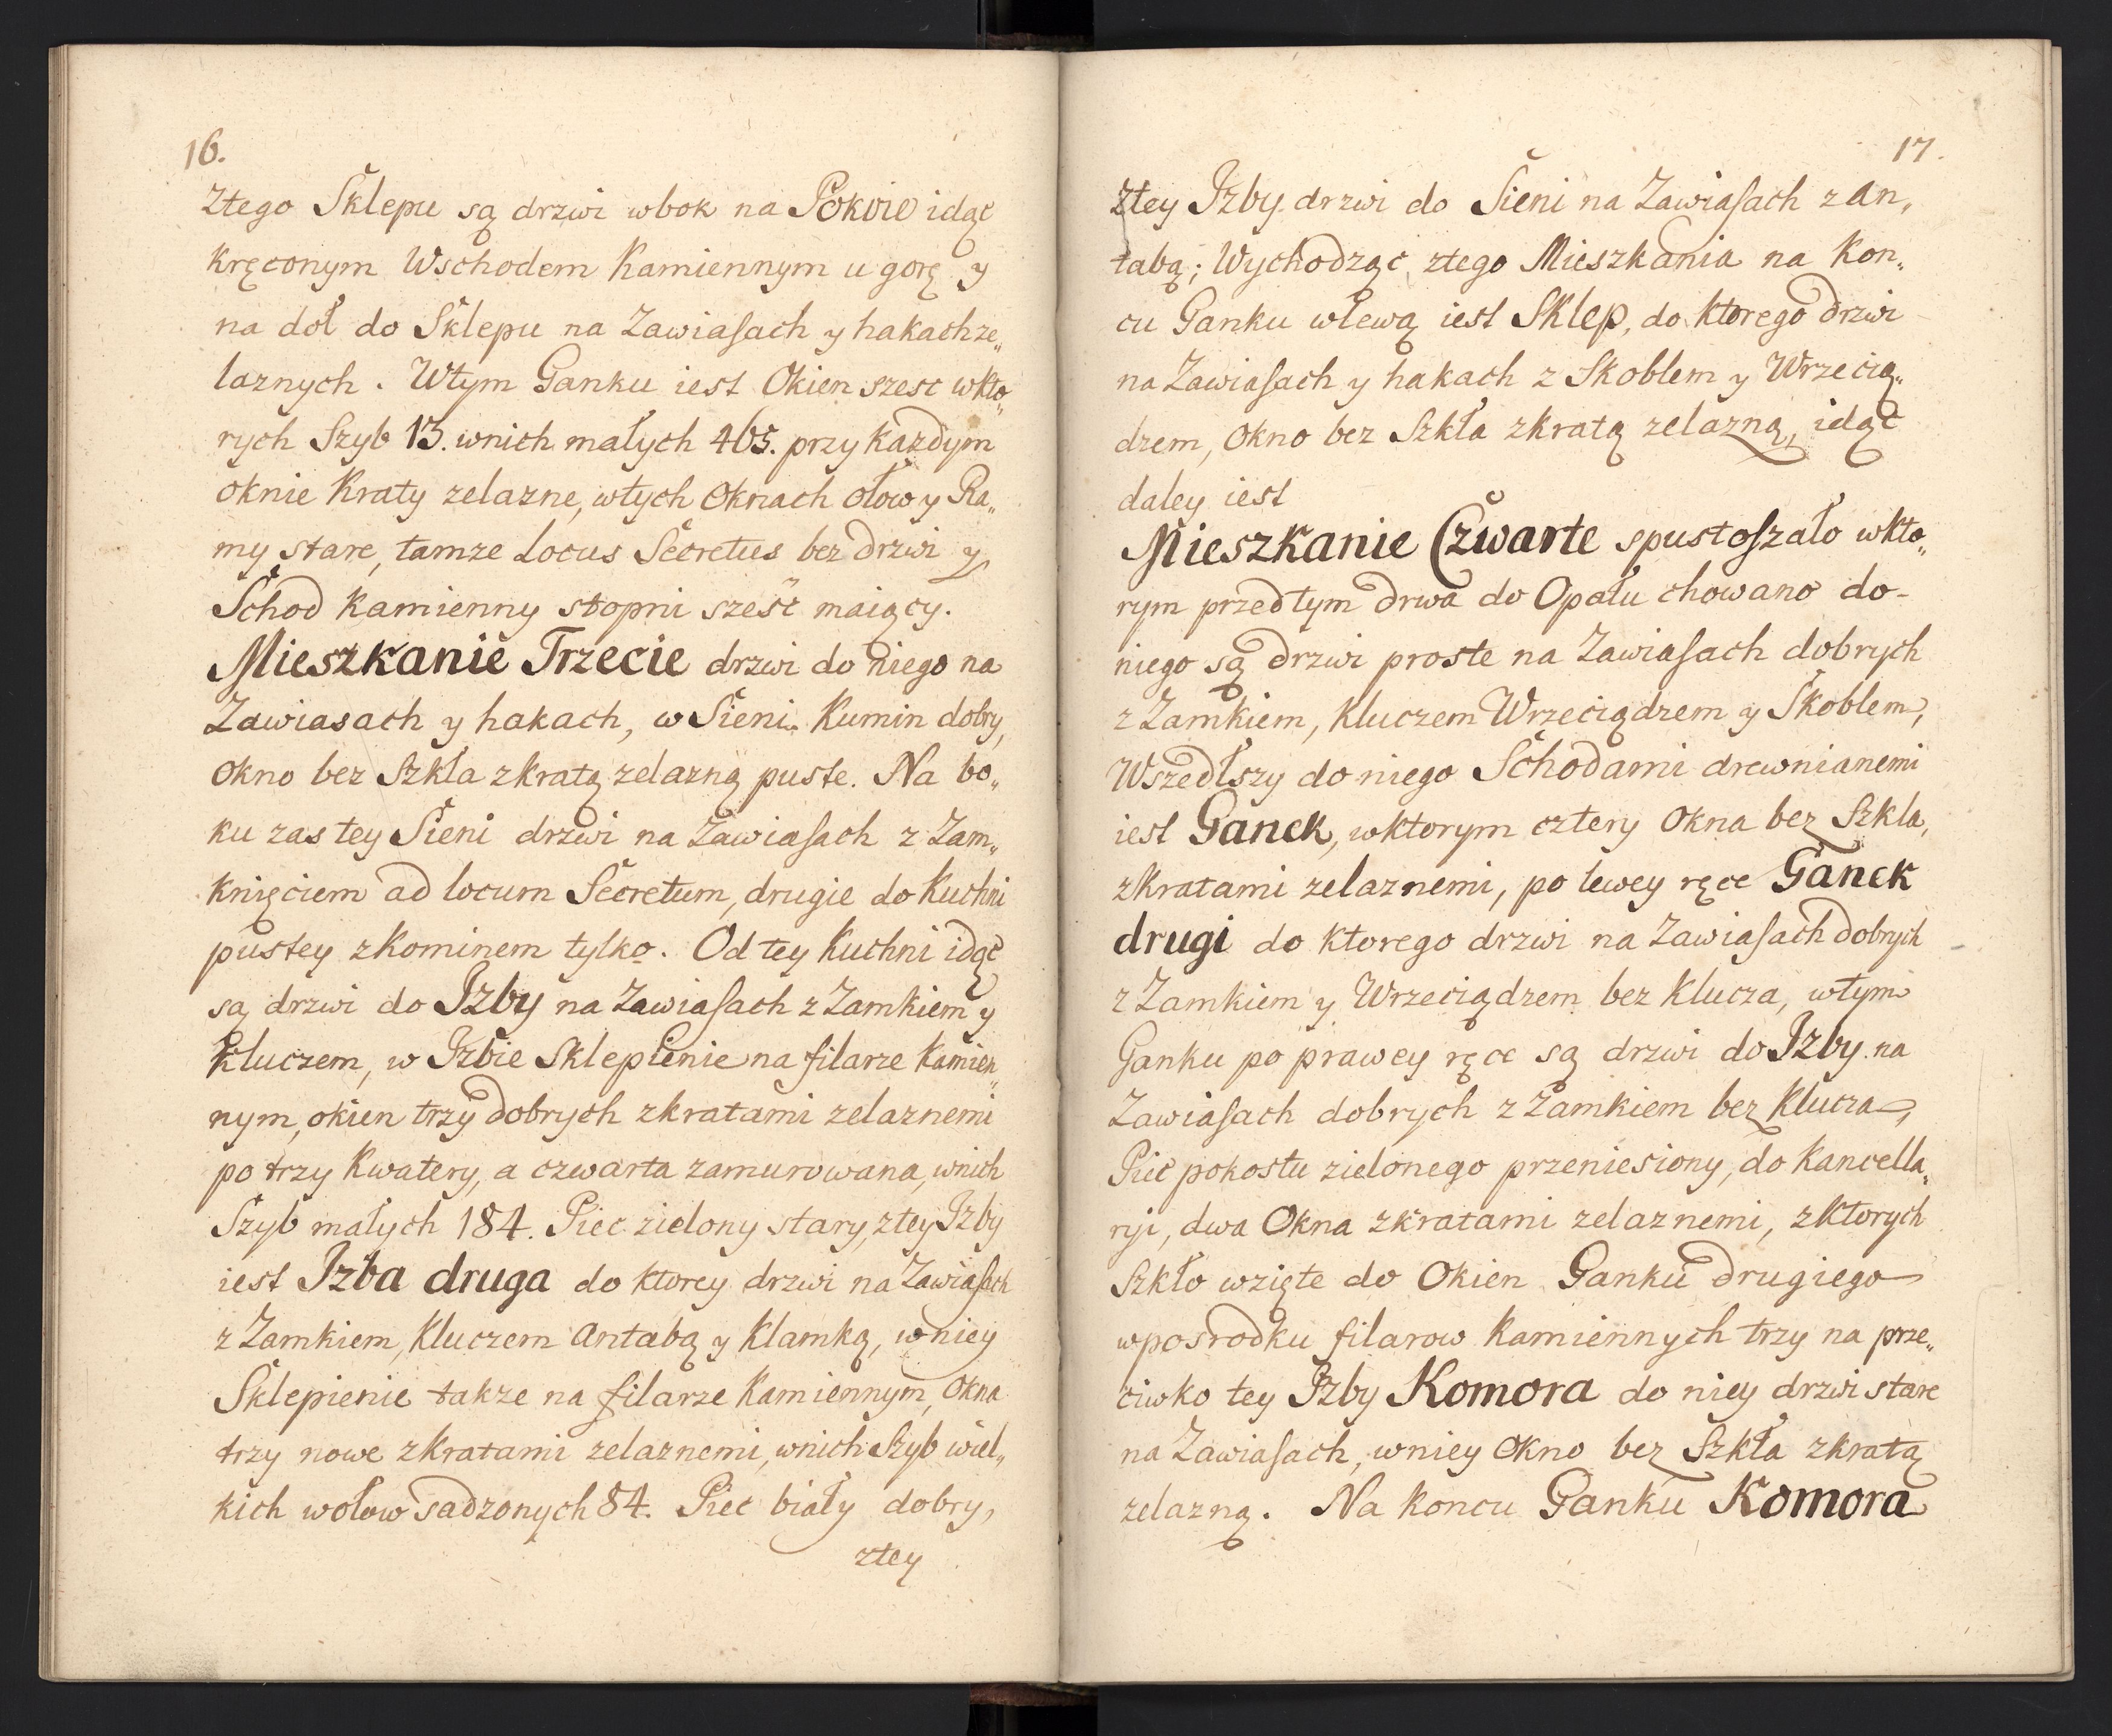 16.
Ztego Sklepu są drzwi wbok na Pokoie idąc
Kręconym Wschodem Kamiennym u gorę y
na doł do Sklepu na Zawiasach y hakach ze„
laznych. Wtym Ganku iest Okien szesc wkto„
rych Szyb 13. wnich małych 465. przy kazdym
oknie Kraty zelazne, wtych Oknach ołow y Ra„
my stare, tamze Locus Secretus bez drzwi y
Schod Kamienny stopni sześc maiący.
Mieszkanie Trzecie drzwi do niego na
Zawiasach y hakach, w Sieni Kumin dobry,
okno bez Szkła zkratą zelazną puste. Na bo„
ku zas tey Sieni drzwi na Zawiasach z Zam„
knięciem ad locum Secretum, drugie do Kuchni
pustey zKominem tylko. Od tey Kuchni idąc
są drzwi do Izby na Zawiasach z Zamkiem y
Kluczem, w Izbie Sklepienie na filarze Kamien„
nym, okien trzy dobrych zkratami zelaznemi
po trzy Kwatery, a czwarta zamurowana, wnich
Szyb małych 184. Piec zielony stary, ztey Izby
iest Izba druga do ktorey drzwi na Zawiasach
z Zamkiem, Kluczem Antabą y Klamką, wniey
Sklepienie takze na filarze Kamiennym, Okna
trzy nowe zkratami zelaznemi, wnich Szyb wiel„
kich wołow sadzonych 84. Piec biały dobry,
ztey
17.
Ztey Izby drzwi do Sieni na Zawiasach z an„
tabą; Wychodząc ztego Mieszkania na Kon„
cu Ganku wlewą iest Sklep, do ktorego drzwi
na Zawiasach y hakach z Skoblem y Wrzecią„
dzem, Okno bez Szkła zkratą zelazną, idąc
daley iest
Mieszkanie Czwarte spustoszało wkto„
rym przedtym drwa do Opału chowano do-
niego są drzwi proste na Zawiasach dobrych
z Zamkiem, Kluczem Wrzeciądzem y Skoblem,
Wszedłszy do niego Schodami drewnianemi
iest Ganek, wktorym cztery Okna bez Szkła,
zkratami zelaznemi, po lewey ręce Ganek
drugi do ktorego drzwi na Zawiasach dobrych
z Zamkiem y Wrzeciądzem bez Klucza, wtym
Ganku po prawey ręce są drzwi do Izby na
Zawiasach dobrych z Zamkiem bez Klucza,
Piec pokostu zielonego przeniesiony, do Kancella„
ryi, dwa Okna zkratami zelaznemi, zktorych
Szkło wzięte do Okien Ganku drugiego
wposrodku filarow Kamiennych trzy na prze„
ciwko tey Izby Komora do niey drzwi stare
na Zawiasach, wniey Okno bez Szkła zkratą
zelazną. Na koncu Ganku Komora